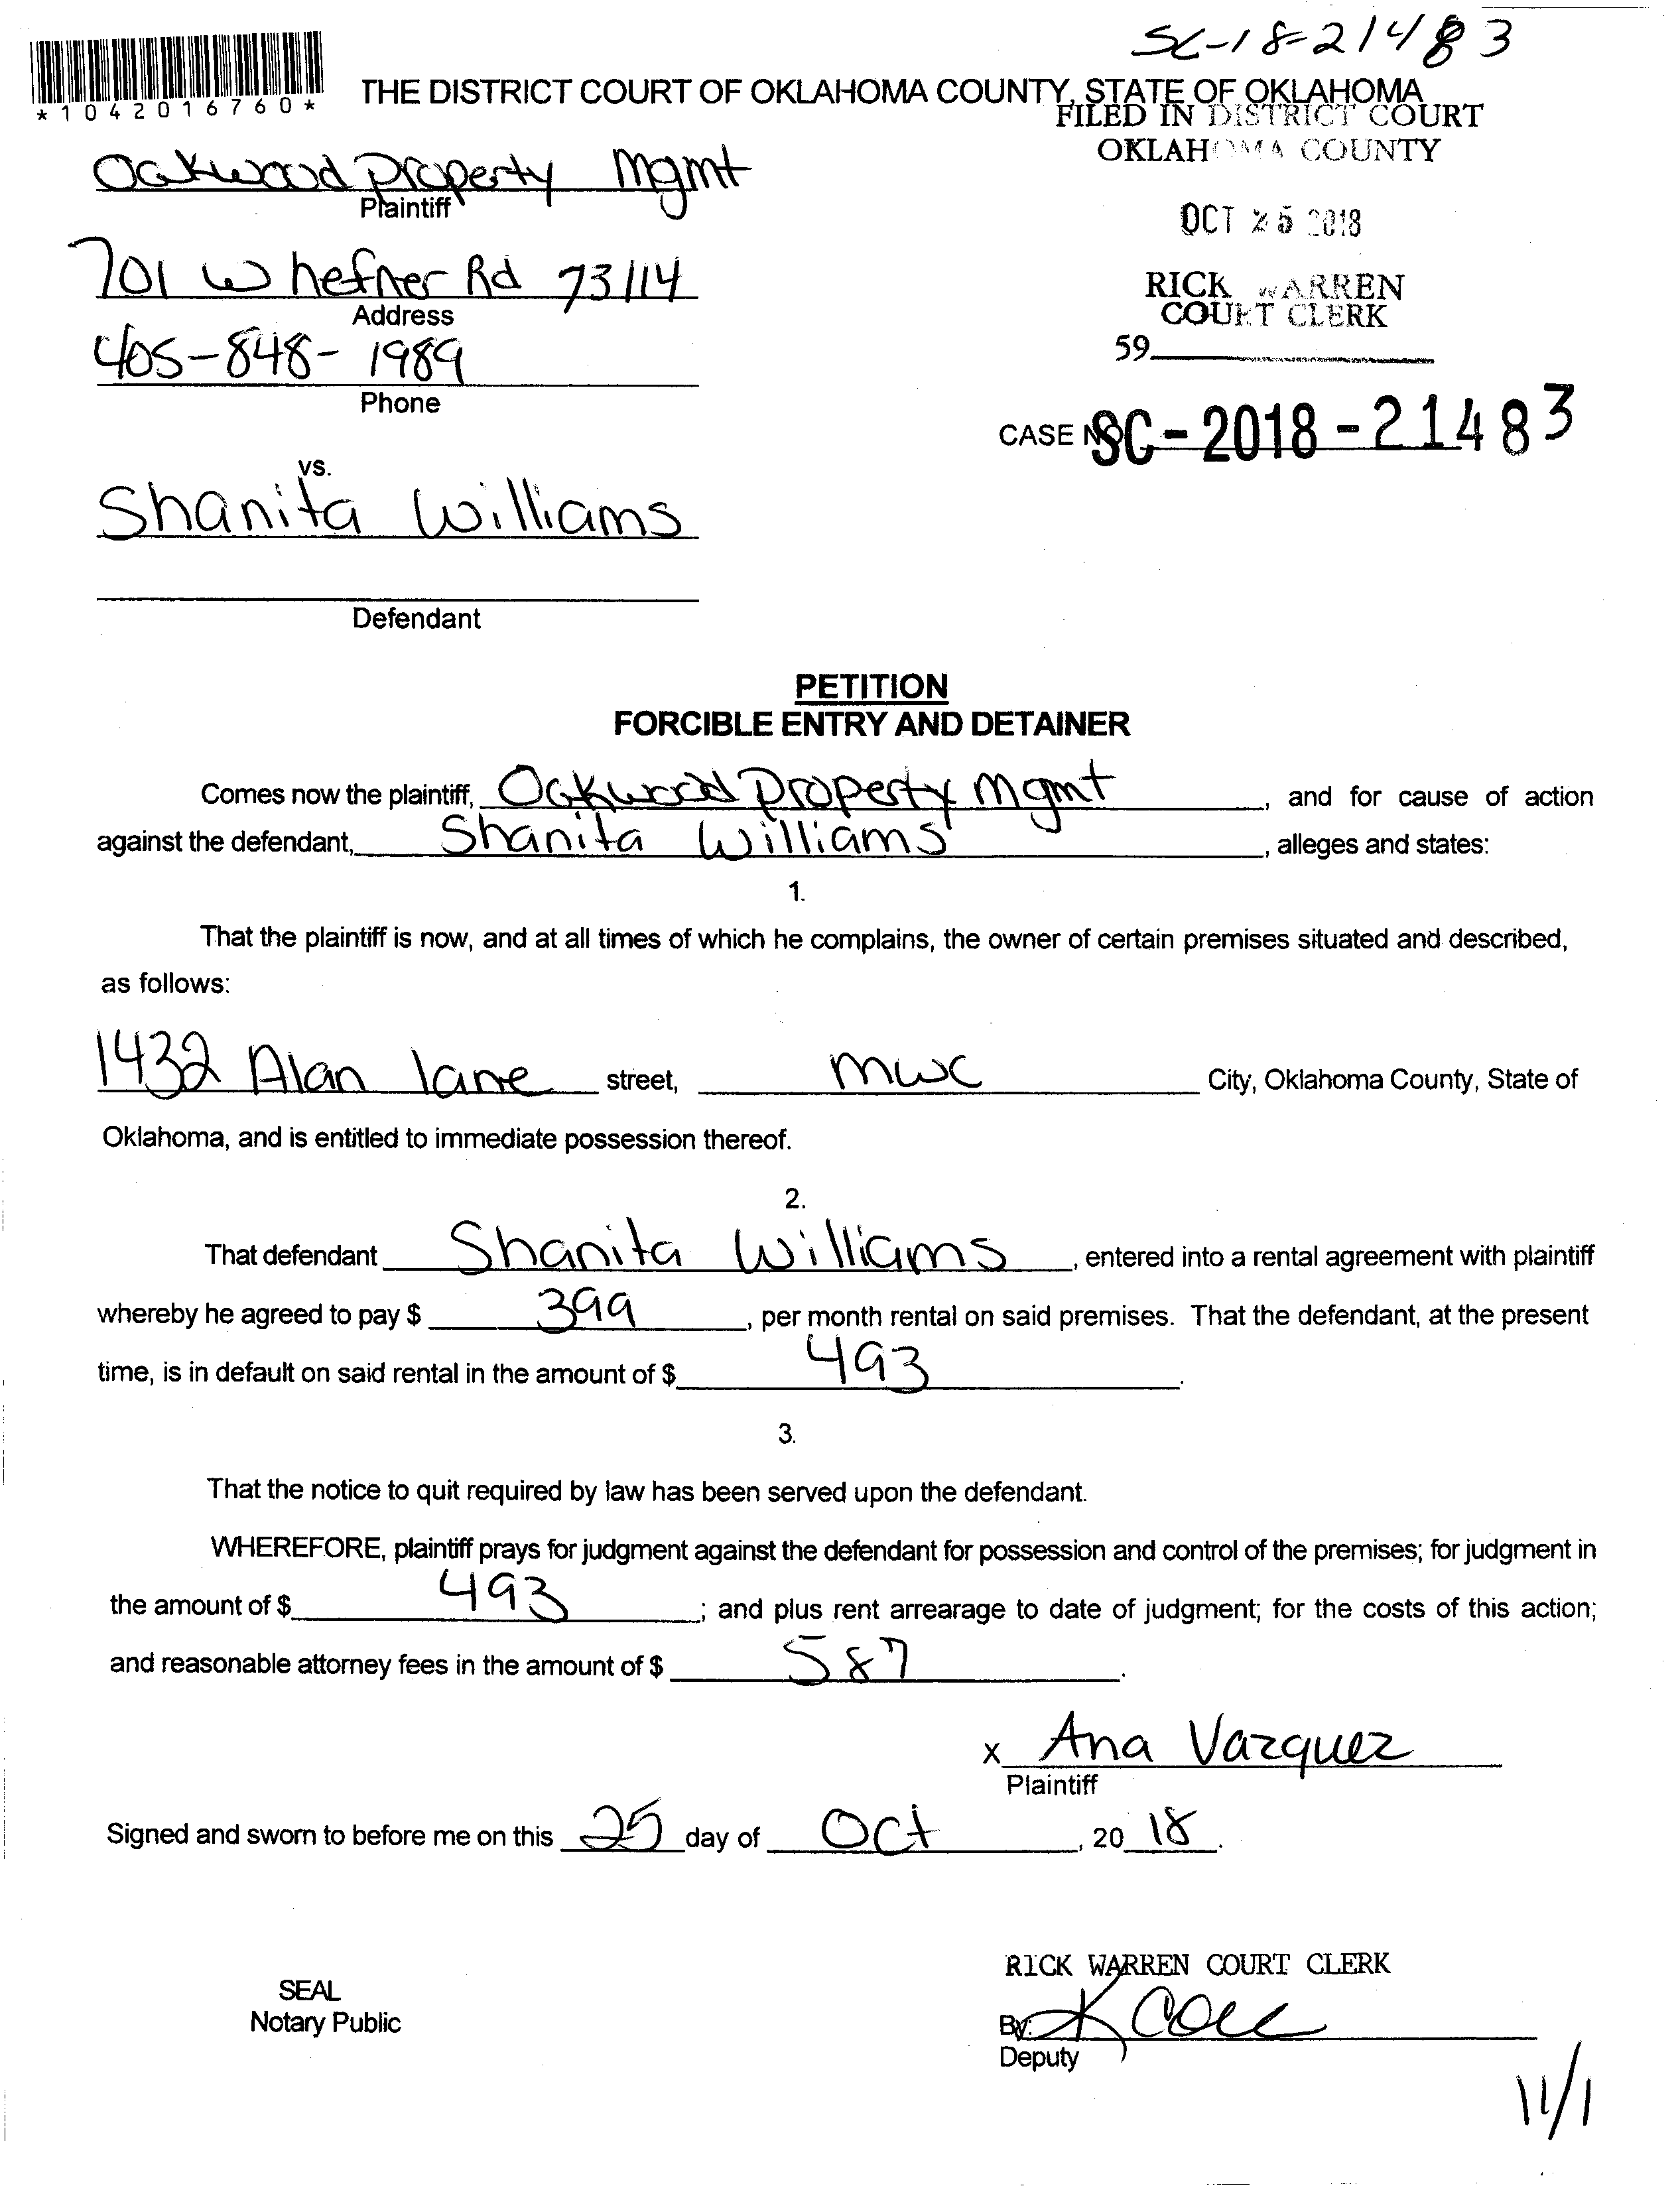 SC-18-21483
*1042016760*
THE DISTRICT COURT OF OKLAHOMA COUNTY, STATE OF OKLAHOMA
FILED IN DISTRICT COURT
OKLAHOMA COUNTY
Oakwood Property Mgmt
Plaintiff
OCT 25 2018
701 W hefner Rd 73114
Address
RICK WARREN
COURT CLERK
405-848-1989
Phone
59
CASE NO. SC-2018-21483
vs.
Shanita Williams
Defendant
PETITION
FORCIBLE ENTRY AND DETAINER
Comes now the plaintiff, Oakwood Property Mgmt, and for cause of action
against the defendant, Shanita Williams, alleges and states:
1.
That the plaintiff is now, and at all times of which he complains, the owner of certain premises situated and described,
as follows:
1432 Alan lane street, mwc City, Oklahoma County, State of
Oklahoma, and is entitled to immediate possession thereof.
2.
That defendant Shanita Williams, entered into a rental agreement with plaintiff
whereby he agreed to pay $ 399, per month rental on said premises. That the defendant, at the present
time, is in default on said rental in the amount of $ 493.
3.
That the notice to quit required by law has been served upon the defendant.
WHEREFORE, plaintiff prays for judgment against the defendant for possession and control of the premises; for judgment in
the amount of $ 493; and plus rent arrearage to date of judgment; for the costs of this action;
and reasonable attorney fees in the amount of $ 587.
x Ana Vazquez
Plaintiff
Signed and sworn to before me on this 25 day of Oct, 2018.
RICK WARREN COURT CLERK
SEAL
Notary Public
By: K
Deputy
11/1